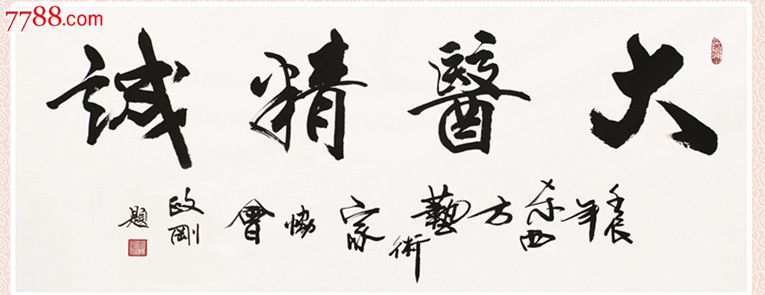 7788.com
大醫精誠
壬辰年 东西方藝術家協會
政剛
題